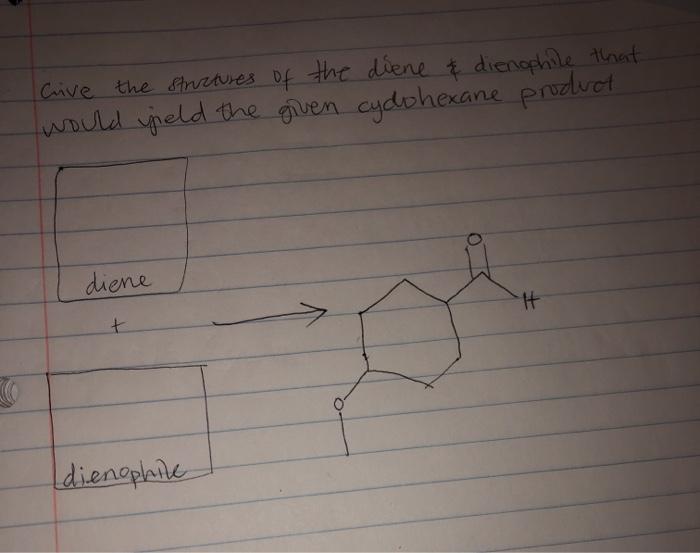 Give the structures of the diene & dienophile that
would yield the given cyclohexane product
diene
+
dienophile
O
H
O